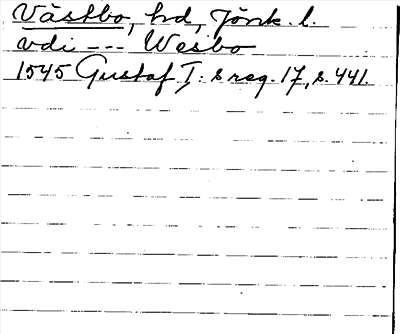 Västbo, hd, Jönk. l.
vdi --- Wesbo
1545 Gustaf I:s reg. 17, s. 441.